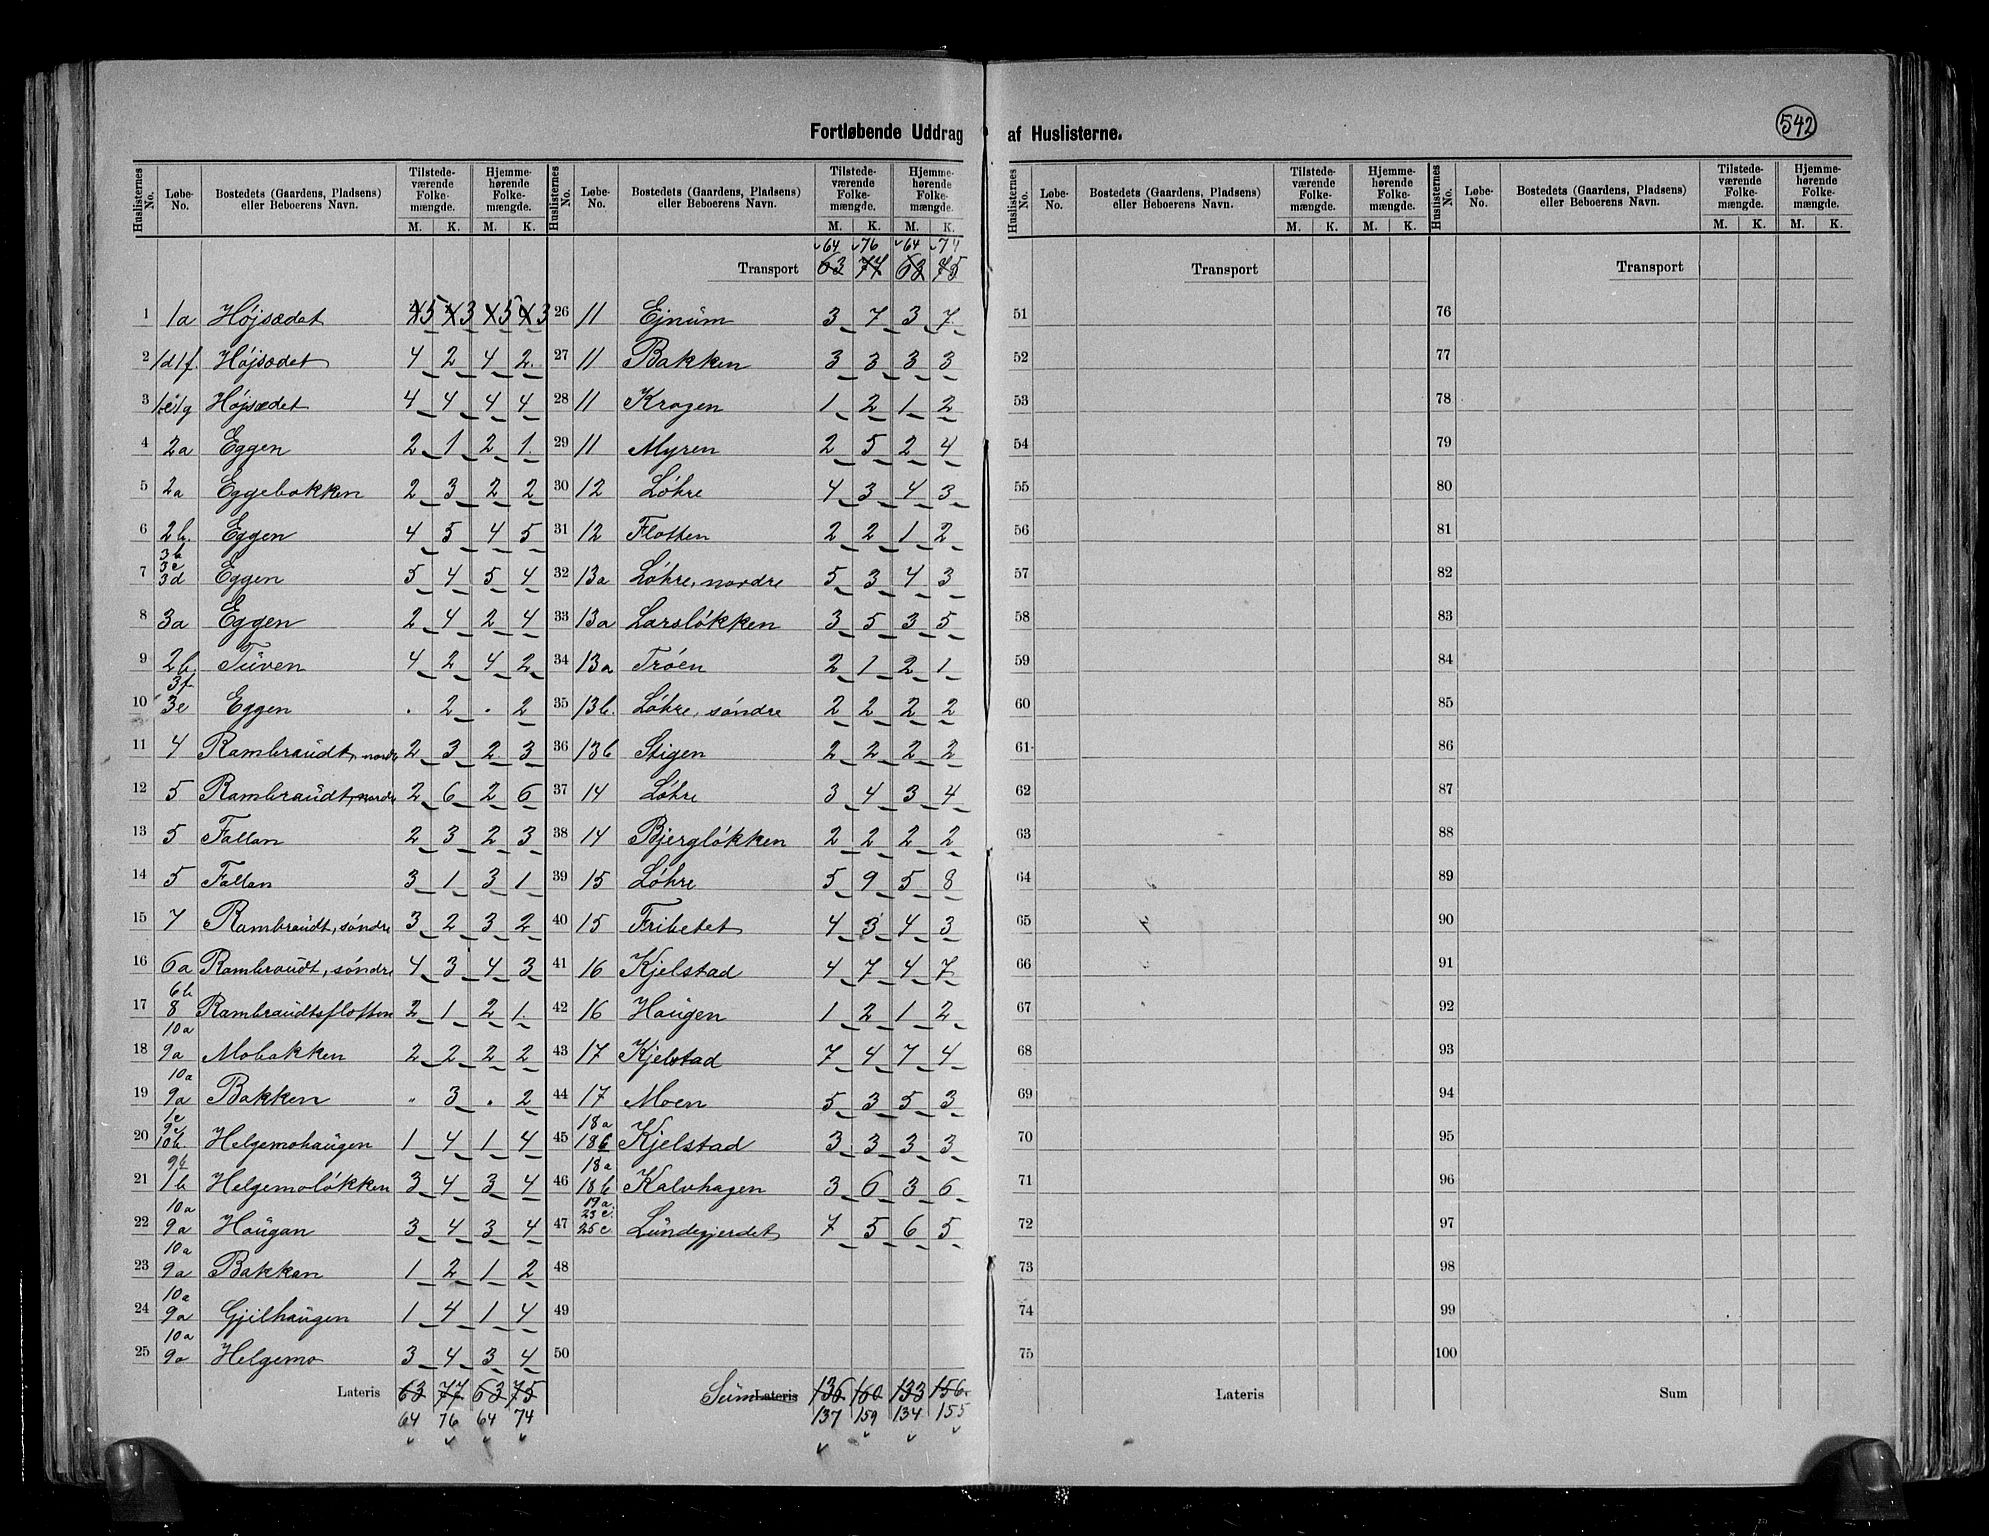 Fortløbende Uddrag af Huslisterne.
542
Huslisternes No. Løbe-No. Bostedets (Gaardens, Pladsens) eller Beboerens Navn. Tilstede-værende Folke-mængde. Hjemme-hørende Folke-mængde. M. K. M. K.
1 1a Højsædet 5 3 5 3
2 1d 1f. Højsædet 4 2 4 2
3 1g Højsædet 4 4 4 4
4 2a Eggen 2 1 2 1
5 2a Eggebakken 2 3 2 2
6 2b. Eggen 4 5 4 5
7 3b 3c 3d Eggen 5 4 5 4
8 3a Eggen 2 4 2 4
9 2b. Tüven 4 2 4 2
10 3f 3e Eggen . 2 . 2
11 4 Rambraüdt, nordre 2 3 2 3
12 5 Rambraüdt, nordre 2 6 2 6
13 5 Fallan 2 3 2 3
14 5 Fallan 3 1 3 1
15 7 Rambraüdt, søndre 3 2 3 2
16 6a Rambraüdt, søndre 4 3 4 3
17 6b 8 Rambraüdtsflotten 2 1 2 1
18 10a 9a Mobakken 2 2 2 2
19 10a 9a Bakken . 3 . 2
20 1c 9c 10b. Helgemohaügen 1 4 1 4
21 9b 1b Helgemoløkken 3 4 3 4
22 10a 9a Haügan 3 4 3 4
23 10a 9a Bakkan 1 2 1 2
24 10a 9a Gjilhaügen 1 4 1 4
25 10a 9a Helgemo 3 4 3 4
Lateris 63 77 63 75
64 76 64 74
Huslisternes No. Løbe-No. Bostedets (Gaardens, Pladsens) eller Beboerens Navn. Tilstede-værende Folke-mængde. Hjemme-hørende Folke-mængde. M. K. M. K.
64 76 64 74
Transport 63 77 63 75
26 11 Ejnüm 3 7 3 7
27 11 Bakken 3 3 3 3
28 11 Krogen 1 2 1 2
29 11 Myren 2 5 2 4
30 12 Løhre 4 3 4 3
31 12 Flotten 2 2 1 2
32 13a Løhre, nordre 5 3 4 3
33 13a Larsløkken 3 5 3 5
34 13a Trøen 2 1 2 1
35 13b. Løhre, søndre 2 2 2 2
36 13b Stigen 2 2 2 2
37 14 Løhre 3 4 3 4
38 14 Bjergløkken 2 2 2 2
39 15 Løhre 5 9 5 8
40 15 Fribetet 4 3 4 3
41 16 Kjelstad 4 7 4 7
42 16 Haügen 1 2 1 2
43 17 Kjelstad 7 4 7 4
44 17 Moen 5 3 5 3
45 18a 18b Kjelstad 3 3 3 3
46 18a 18b Kalvhagen 3 6 3 6
47 19a. 23c. 25c Lündegjerdet 7 5 6 5
48
49
50
Süm Lateris 136 160 133 156.
137 159 134 155
Huslisternes No. Løbe-No. Bostedets (Gaardens, Pladsens) eller Beboerens Navn. Tilstede-værende Folke-mængde. Hjemme-hørende Folke-mængde. M. K. M. K.
Transport
51
52
53
54
55
56
57
58
59
60
61
62
63
64
65
66
67
68
69
70
71
72
73
74
75
Lateris
Huslisternes No. Løbe-No. Bostedets (Gaardens, Pladsens) eller Beboerens Navn. Tilstede-værende Folke-mængde. Hjemme-hørende Folke-mængde. M. K. M. K.
Transport
76
77
78
79
80
81
82
83
84
85
86
87
88
89
90
91
92
93
94
95
96
97
98
99
100
Sum